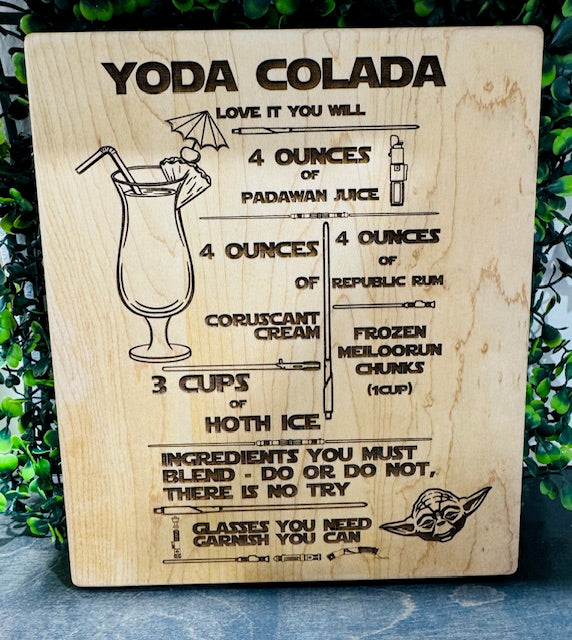 YODA COLADA
LOVE IT YOU WILL
4 OUNCES
OF
PADAWAN JUICE
4 OUNCES
OF
CORUSCANT
CREAM
4 OUNCES
OF
REPUBLIC RUM
FROZEN
MEILOORUN
CHUNKS
(1CUP)
3 CUPS
OF
HOTH ICE
INGREDIENTS YOU MUST
BLEND - DO OR DO NOT,
THERE IS NO TRY
GLASSES YOU NEED
GARNISH YOU CAN